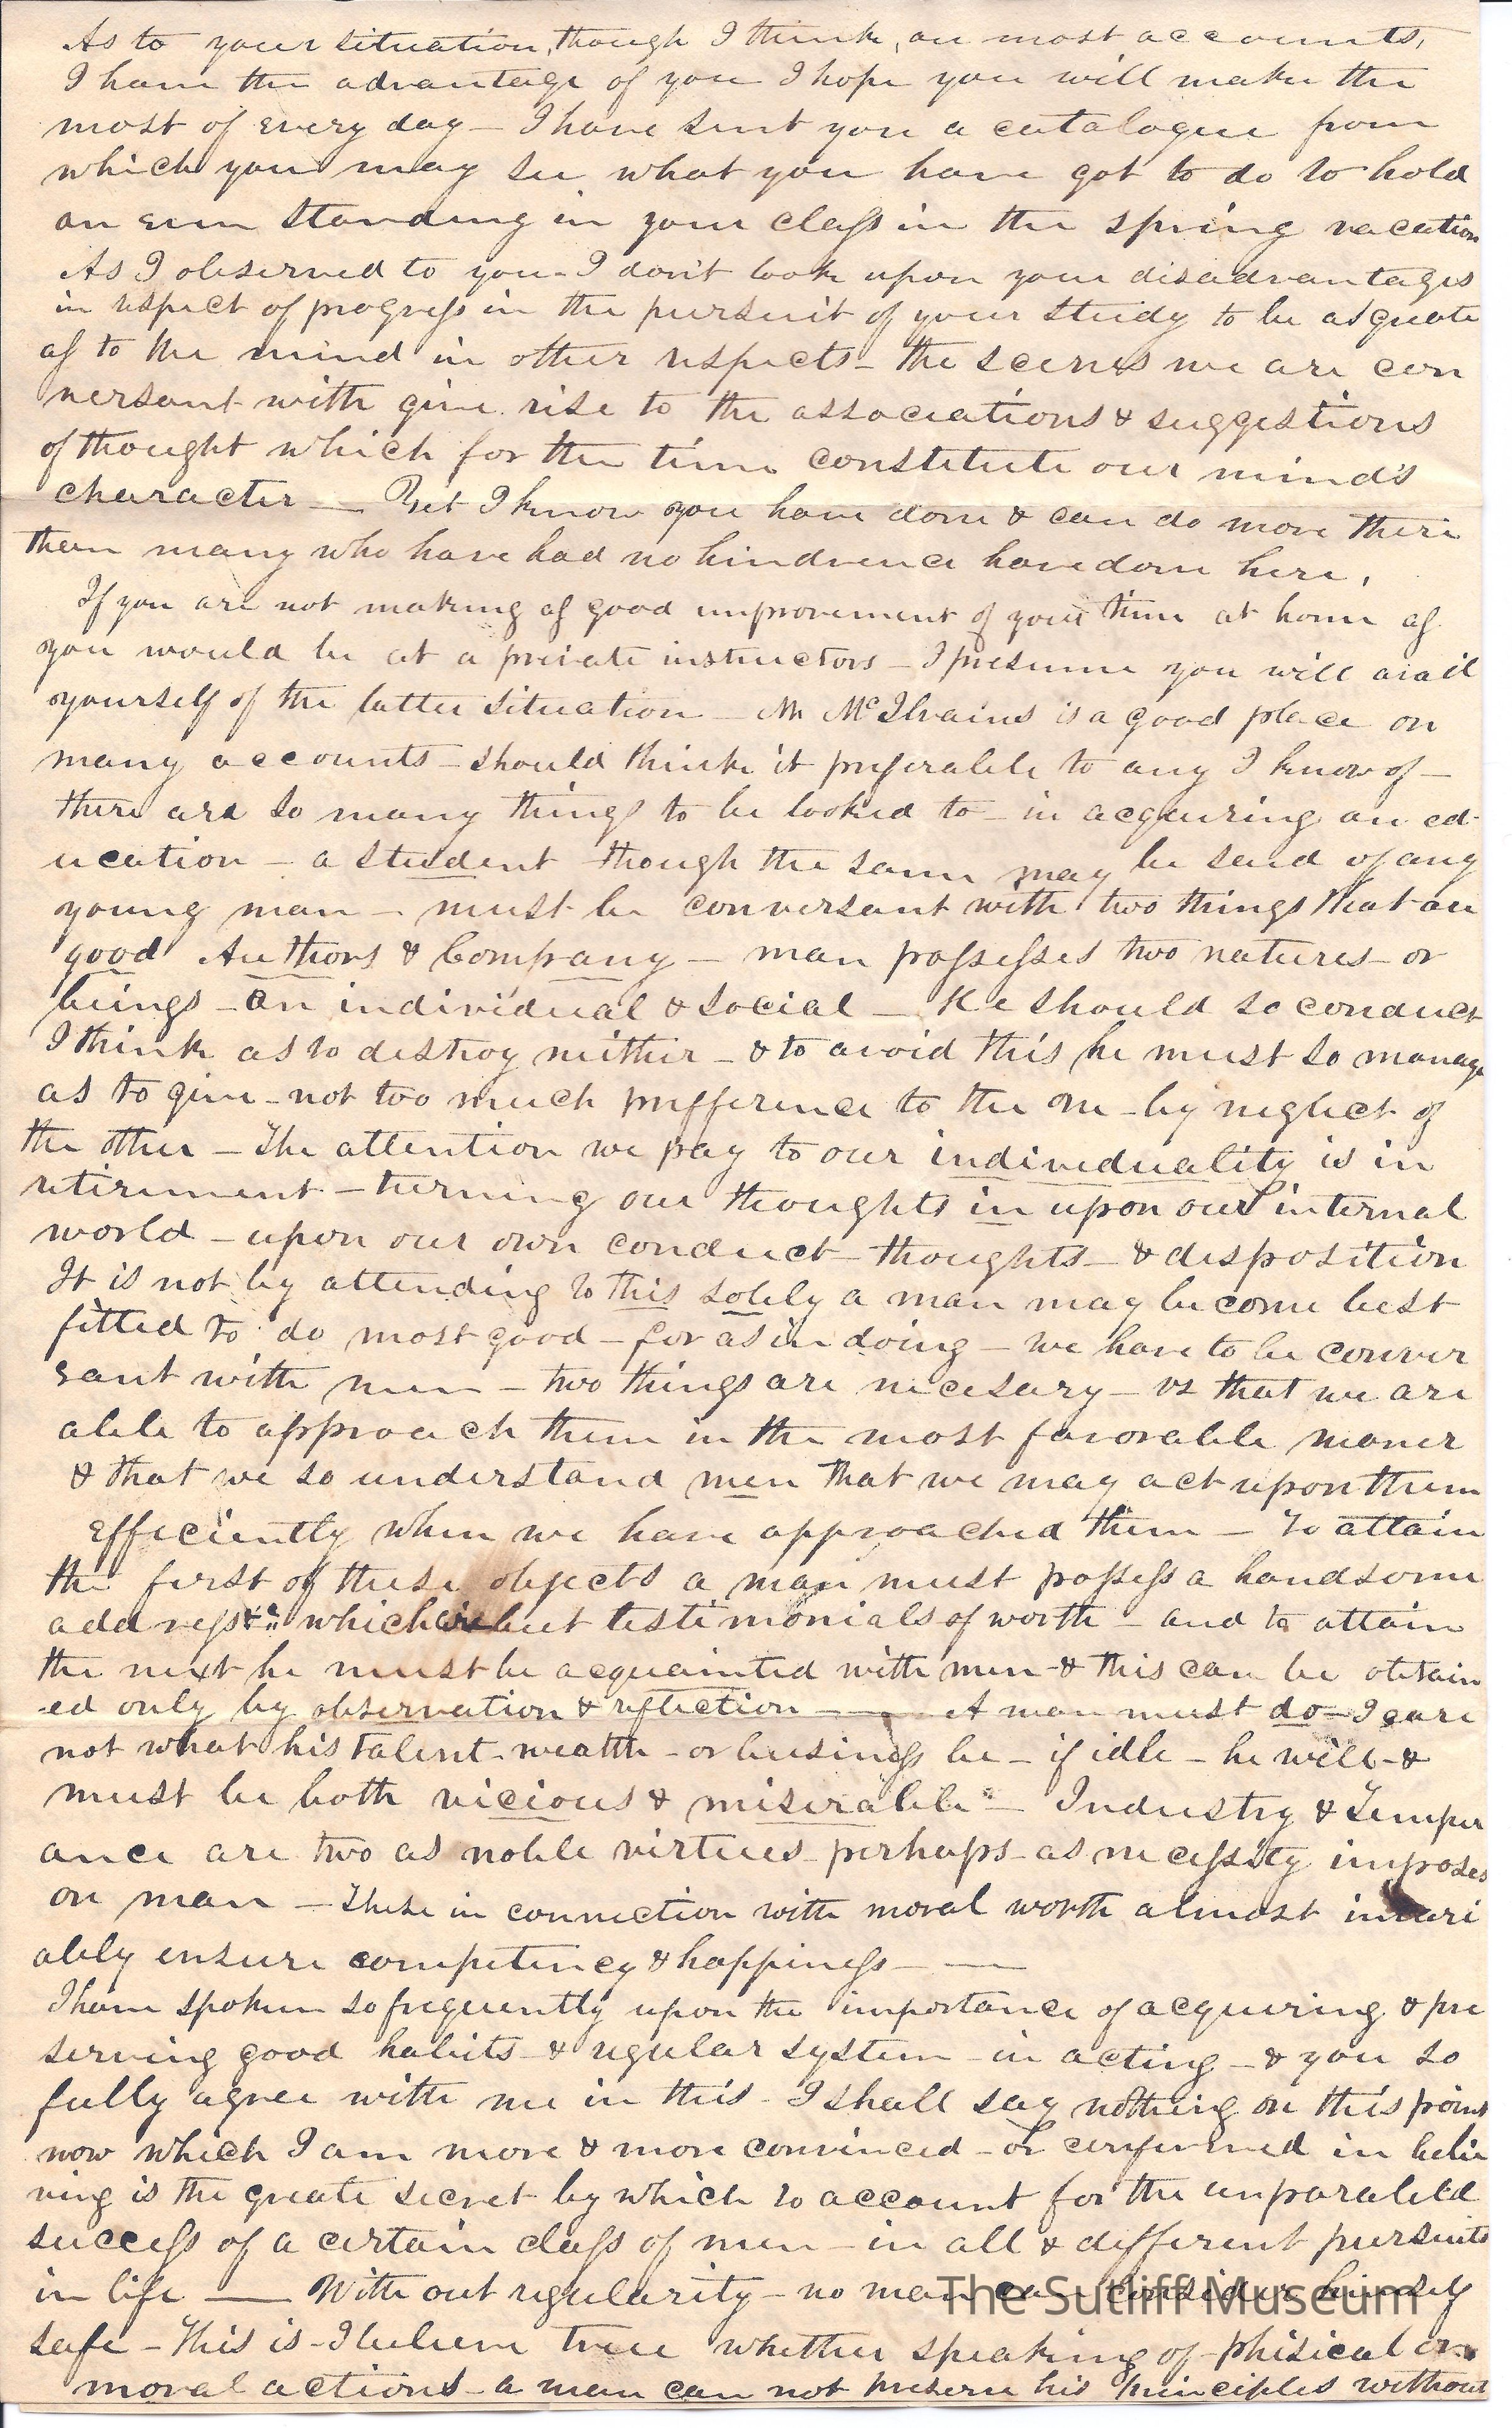 As to your situation, though I think, on most accounts,
I have the advantage of you I hope you will make the
most of every day – I have sent you a catalogue from
which you may see what you have got to do to hold
an even standing in your class in the spring vacation
As I observed to you – I don't look upon your disadvantages
in respect of progress in the pursuit of your study to be as greate
as to the mind in other respects – the scenes we are con
versant with give rise to the associations & suggestions
of thought which for the time constitute our mind's
character — Yet I know you have done & can do more there
then many who have had no hindrence have done here.
If you are not making as good improvement of your time at home as
you would be at a private instructors – I presume you will avail
yourself of the latter situation – Mr McIlvains is a good place on
many accounts – should think it preferable to any I know of –
there are so many things to be looked to – in acquiring an ed-
ucation – a student though the same may be said of any
young man – must be conversant with two things that are
good Authors & Company – man possesses two natures – or
beings – an individual & social – He should so conduct
I think as to destroy neither – & to avoid this he must so manage
as to give – not too much prefference to the one – by neglect of
the other – The attention we pay to our individuality is in
retirement – turning our thoughts in upon our internal
world – upon our own conduct – thoughts – & disposition
It is not by attending to this solely a man may become best
fitted to do most good – for as in doing – we have to be conver
sant with men – two things are necesary – vs that we are
able to approach them in the most favorable maner
& that we so understand men that we may act upon them
Efficiently when we have approached them – To attain
the first of these objects a man must possess a handsome
address &c which are but testimonials of worth – and to attain
the next he must be acquainted with men & this can be obtain
-ed only by observation & reflection — A man must do – I care
not what his talent – wealth – or business be – if idle – he will – &
must be both vicious & miserable – Industry & Temper
ance are two as noble virtues – perhaps – as necessity imposes
on man – These in connection with moral worth almost invari
ably ensure competency & happiness – —
I have spoken so frequently upon the importance of acquiring & pre
serving good habits – & regular system – in acting – & you so
fully agree with me in this – I shall say nothing on this point
now which I am more & more convinced – or confirmed in belie
ving is the greate secret by which to account for the unparaleld
success of a certain class of men – in all & different pursuits
in life — Without regularity – no man can consider himself
safe – This is – I believe true whether speaking of phisical or
moral actions – a man can not preserve his principles without
The Sutliff Museum